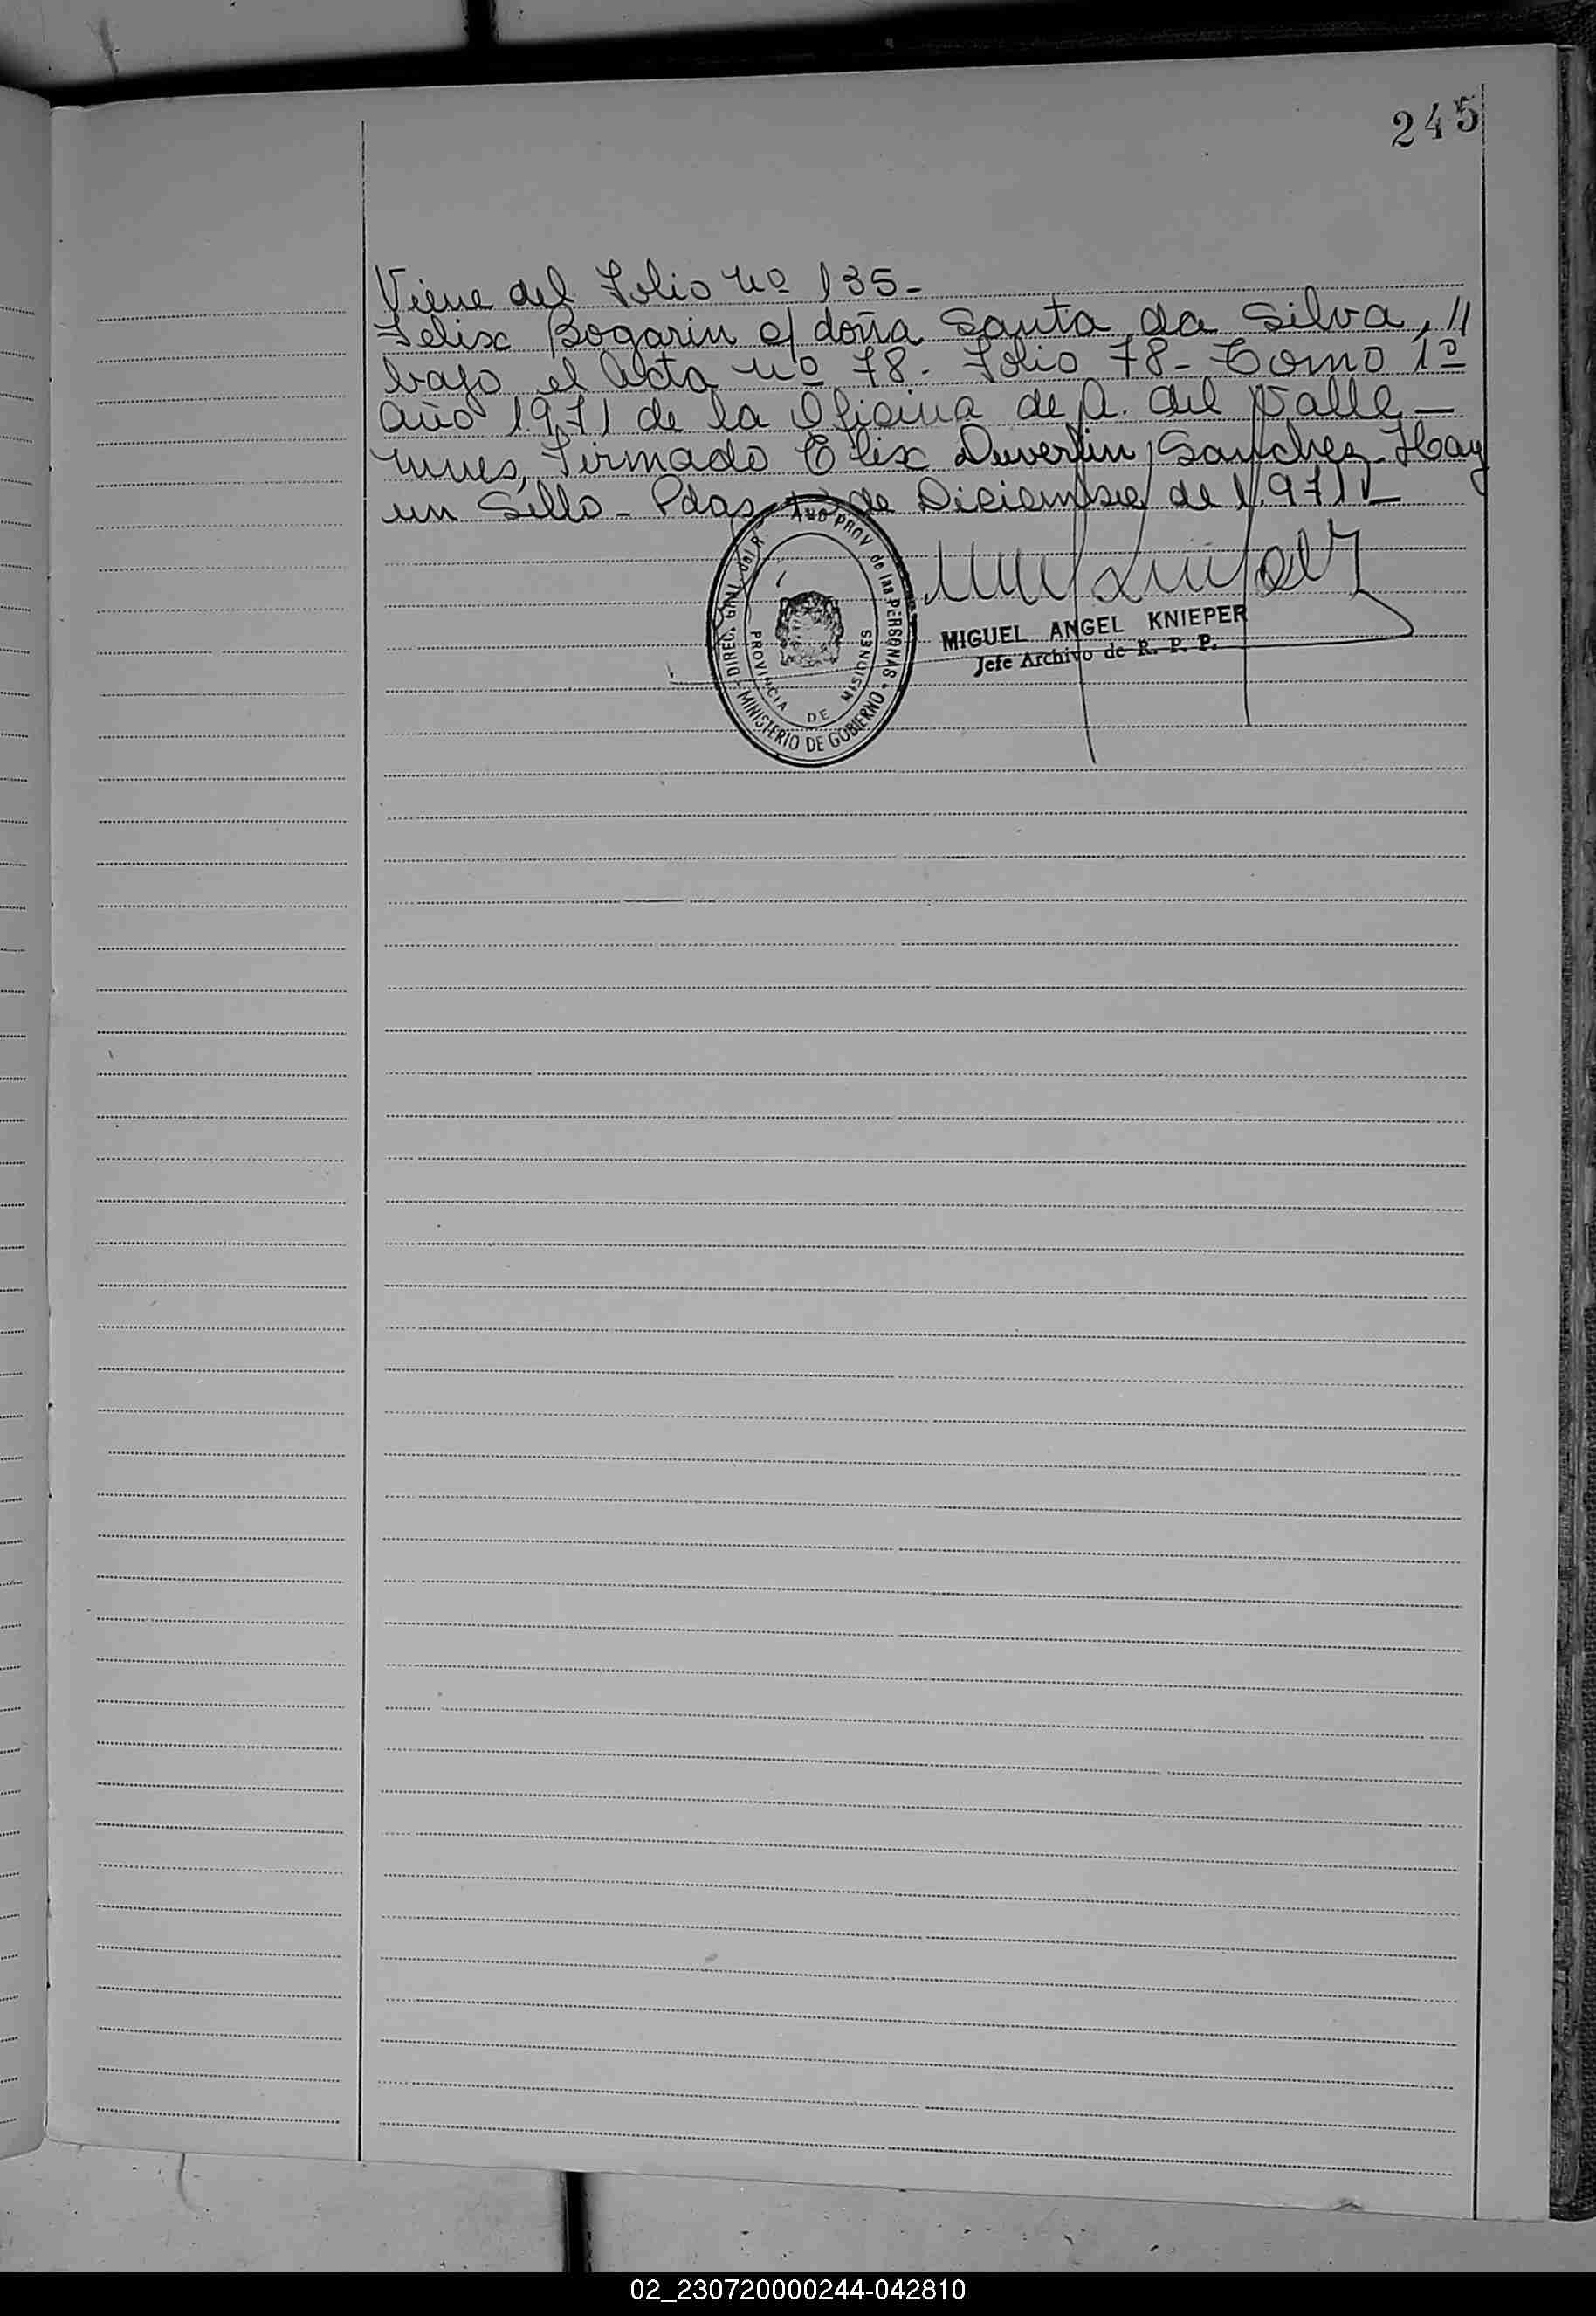 245
Viene del Folio nº 135-
Felix Bogarin c/ doña Santa da Silva, //
bajo el Acta nº 78. Folio 78- Tomo 1º
Año 1971 de la Oficina de A. del Valle -
Firmado Elix Duverlin Sanchez- Hay
un Sello - Pdas de Diciembre de 1.971 -
DIREC. GRAL. del R PROV de las PERSONAS
PROVINCIA DE MISIONES
MINISTERIO DE GOBIERNO
MIGUEL ANGEL KNIEPER
Jefe Archivo de R. P. P.
02_230720000244-042810